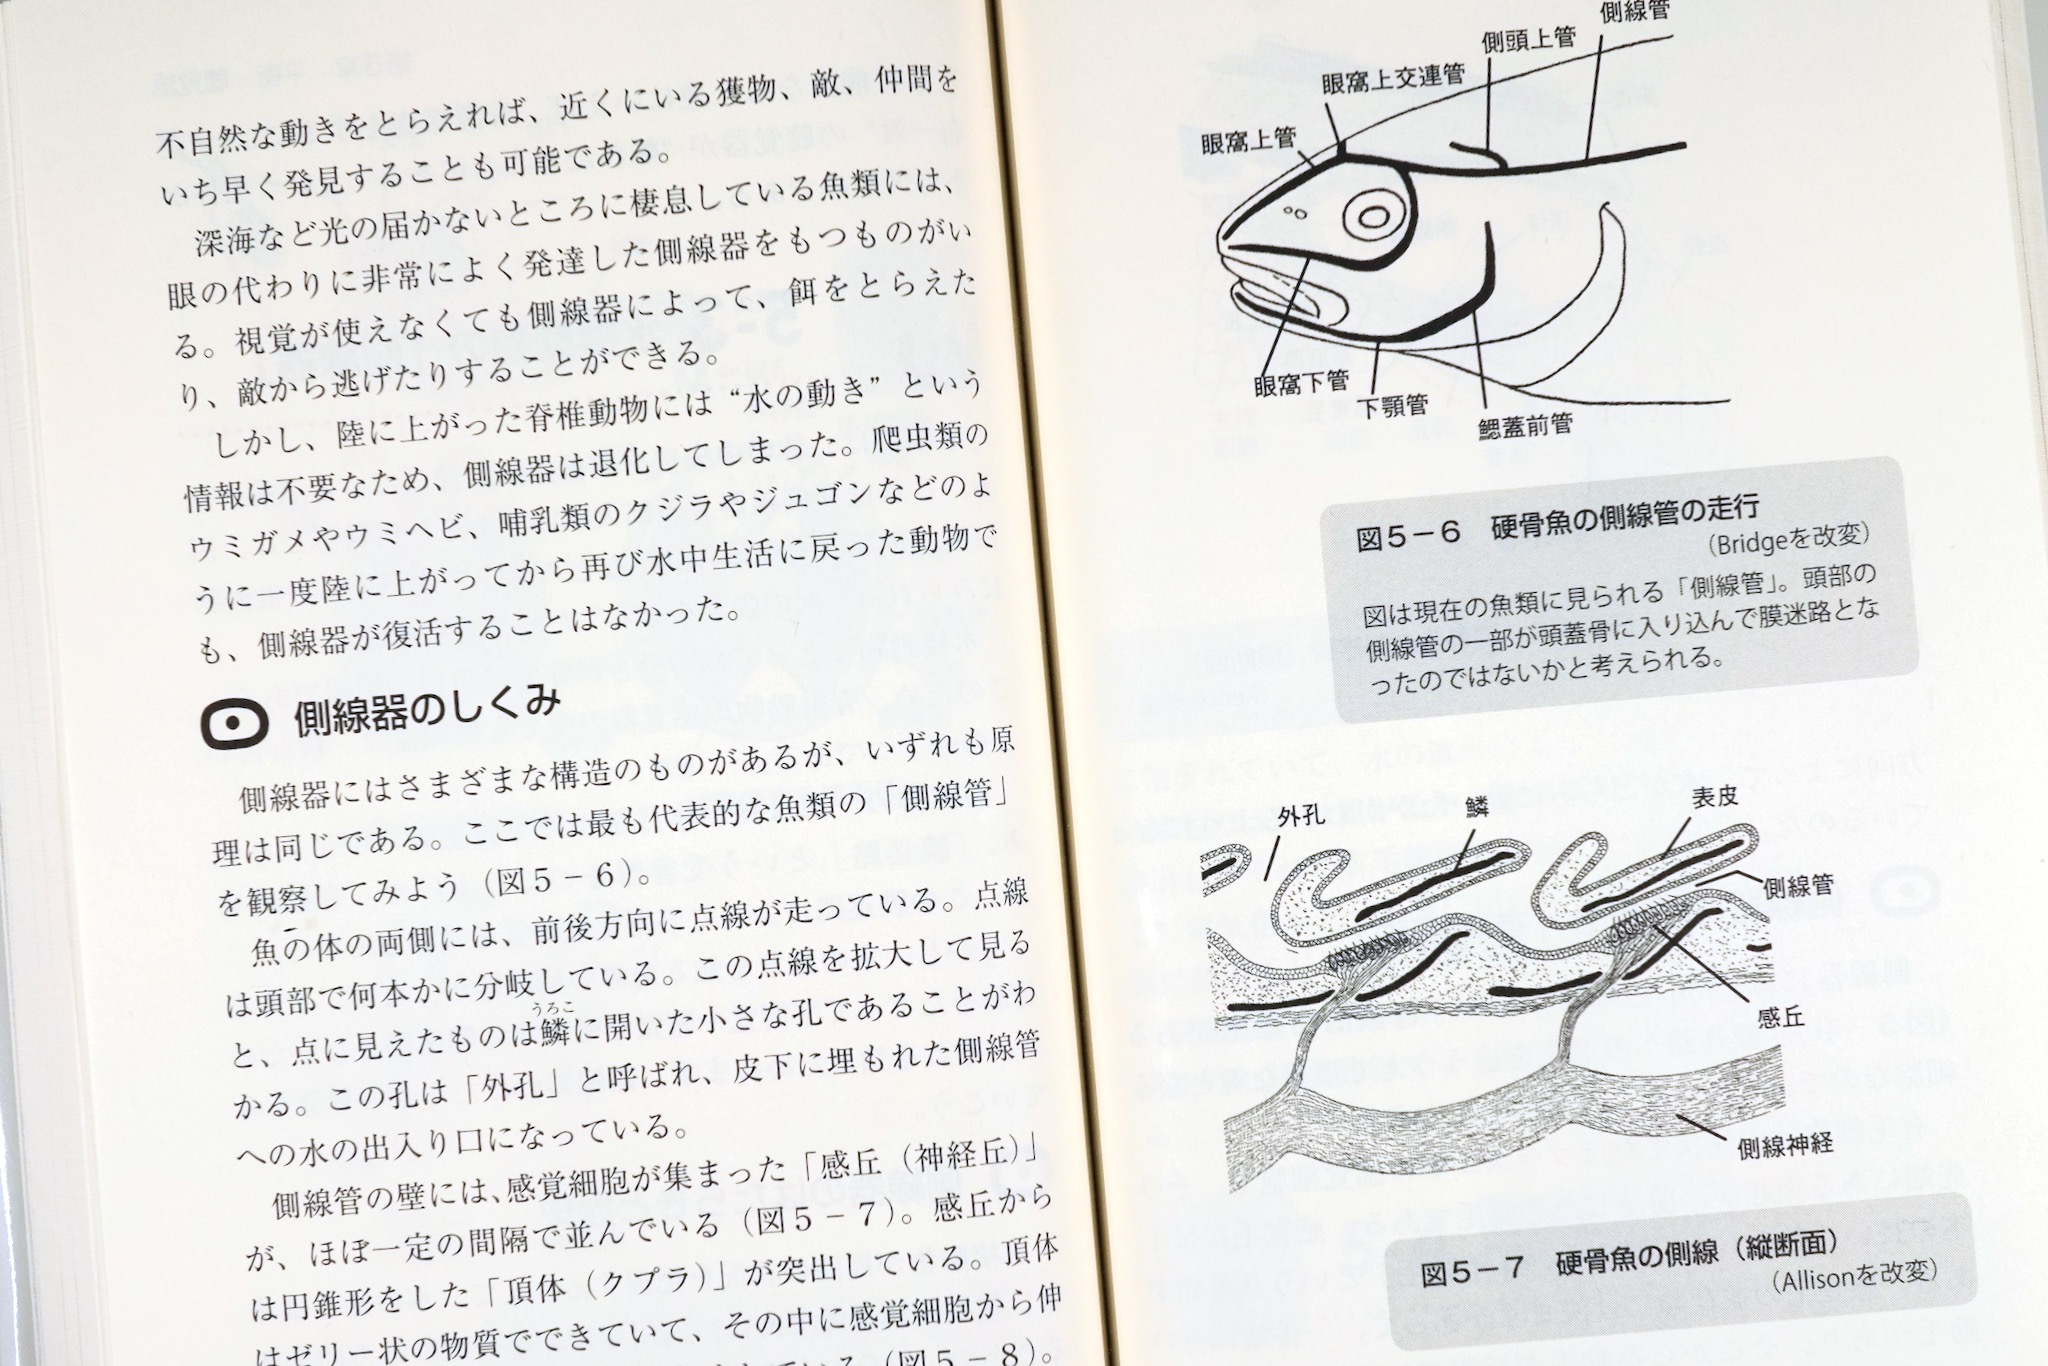 不自然な動きをとらえれば、近くにいる獲物、敵、仲間を
いち早く発見することも可能である。
深海など光の届かないところに棲息している魚類には、
眼の代わりに非常によく発達した側線器をもつものがい
る。視覚が使えなくても側線器によって、餌をとらえた
り、敵から逃げたりすることができる。
しかし、陸に上がった脊椎動物には“水の動き”という
情報は不要なため、側線器は退化してしまった。爬虫類の
ウミガメやウミヘビ、哺乳類のクジラやジュゴンなどのよ
うに一度陸に上がってから再び水中生活に戻った動物で
も、側線器が復活することはなかった。
側線器のしくみ
側線器にはさまざまな構造のものがあるが、いずれも原
理は同じである。ここでは最も代表的な魚類の「側線管」
を観察してみよう（図5－6）。
魚の体の両側には、前後方向に点線が走っている。点線
は頭部で何本かに分岐している。この点線を拡大して見る
うろこ
と、点に見えたものは鱗に開いた小さな孔であることがわ
かる。この孔は「外孔」と呼ばれ、皮下に埋もれた側線管
への水の出入り口になっている。
側線管の壁には、感覚細胞が集まった「感丘（神経丘）」
が、ほぼ一定の間隔で並んでいる（図5－7）。感丘から
は円錐形をした「頂体（クプラ）」が突出している。頂体
はゼリー状の物質でできていて、その中に感覚細胞から伸
（図5－8）。
側線管
側頭上管
眼窩上交連管
眼窩上管
眼窩下管
下顎管
鰓蓋前管
図5－6　硬骨魚の側線管の走行
（Bridgeを改変）
図は現在の魚類に見られる「側線管」。頭部の
側線管の一部が頭蓋骨に入り込んで膜迷路とな
ったのではないかと考えられる。
外孔
鱗
表皮
側線管
感丘
側線神経
図5－7　硬骨魚の側線（縦断面）
（Allisonを改変）